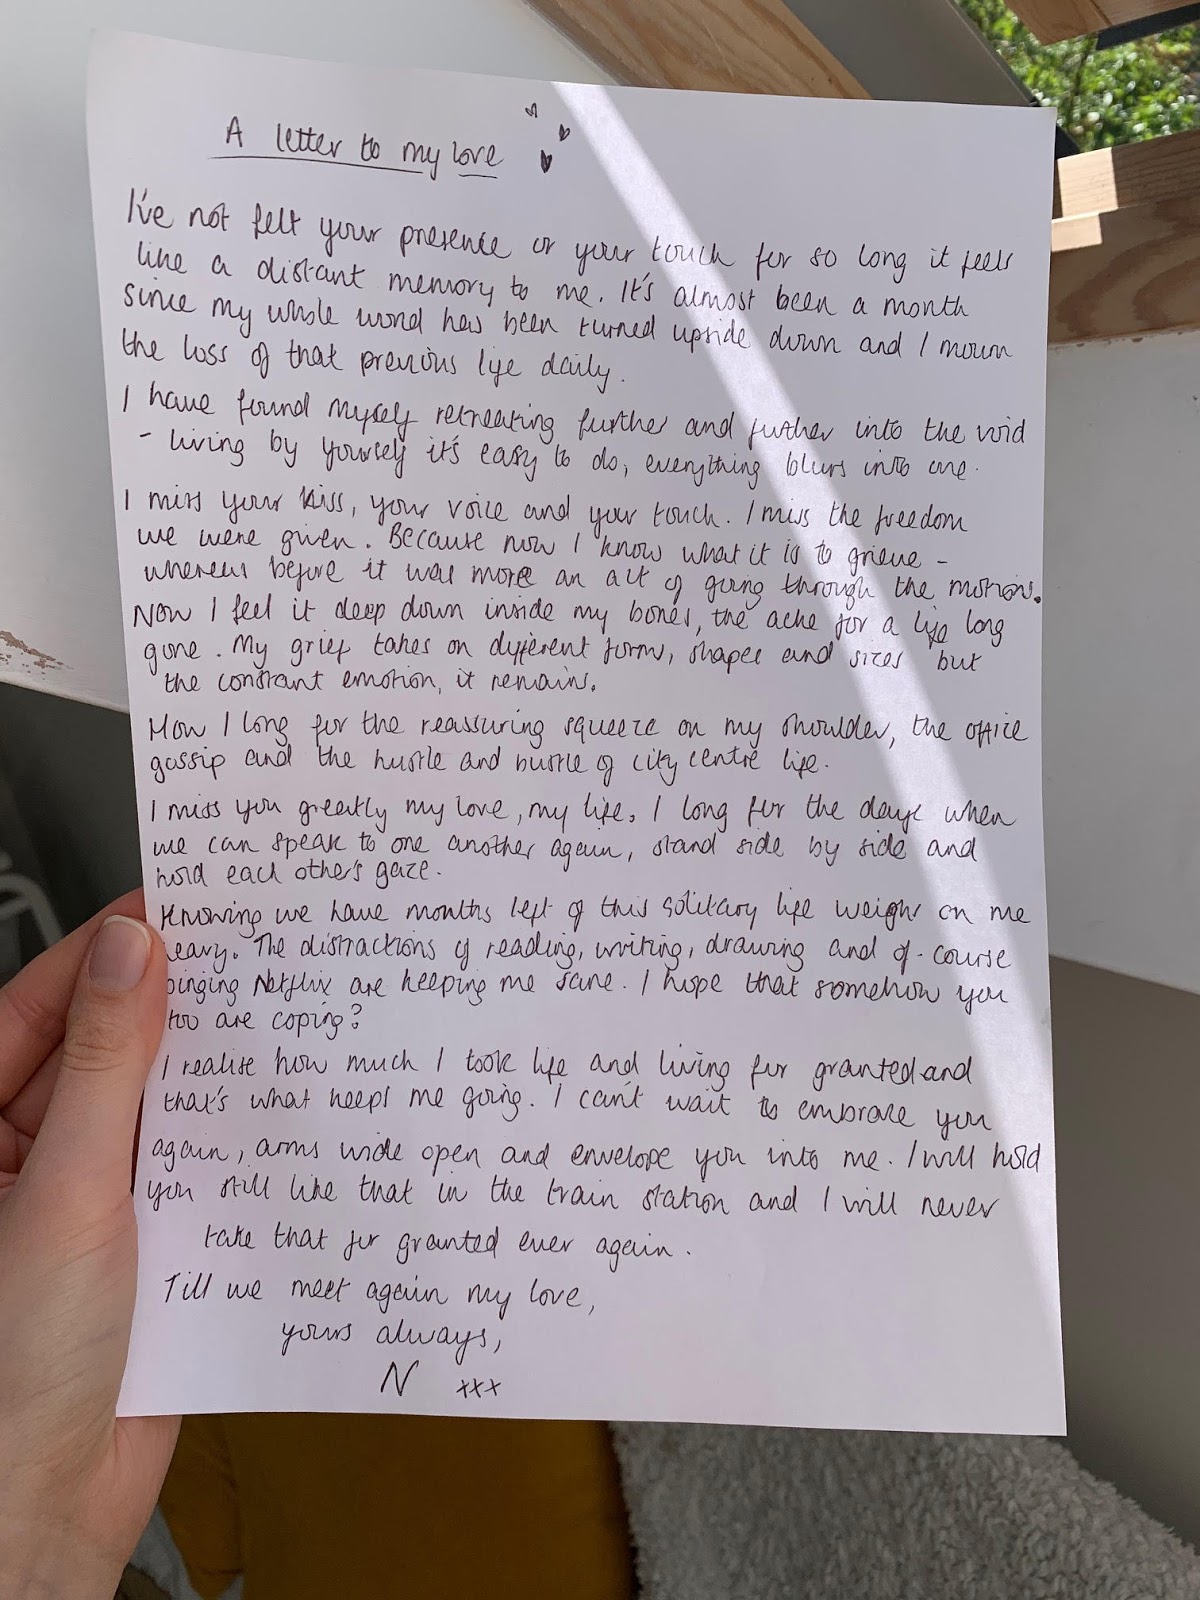 A letter to my love
I've not felt your presence or your touch for so long it feels
like a distant memory to me. It's almost been a month
since my whole world has been turned upside down and I mourn
the loss of that previous life daily.
I have found myself retreating further and further into the void
- living by yourself it's easy to do, everything blurs into one.
I miss your kiss, your voice and your touch. I miss the freedom
we were given. Because now I know what it is to grieve -
whereas before it was more an act of going through the motions.
Now I feel it deep down inside my bones, the ache for a life long
gone. My grief takes on different forms, shapes and sizes but
the constant emotion, it remains.
How I long for the reassuring squeeze on my shoulder, the office
gossip and the hustle and bustle of city centre life.
I miss you greatly my love, my life. I long for the days when
we can speak to one another again, stand side by side and
hold each other's gaze.
Knowing we have months left of this solitary life weighs on me
heavy. The distractions of reading, writing, drawing and of-course
binging Netflix are keeping me sane. I hope that somehow you
too are coping?
I realise how much I took life and living for granted and
that's what keeps me going. I can't wait to embrace you
again, arms wide open and envelope you into me. I will hold
you still like that in the train station and I will never
take that for granted ever again.
Till we meet again my love,
yours always,
N xxx